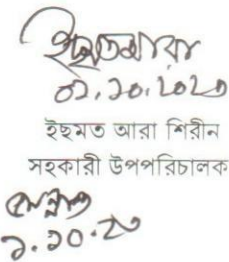 ইছমতআরা
০১.১০.২০২০
ইছমত আরা শিরীন
সহকারী উপপরিচালক
১.১০.২০